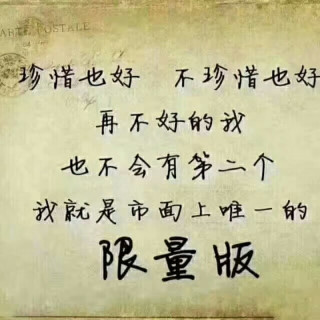 CARTE POSTALE
珍惜也好 不珍惜也好
再不好的我
也不会有第二个
我就是市面上唯一的
限量版